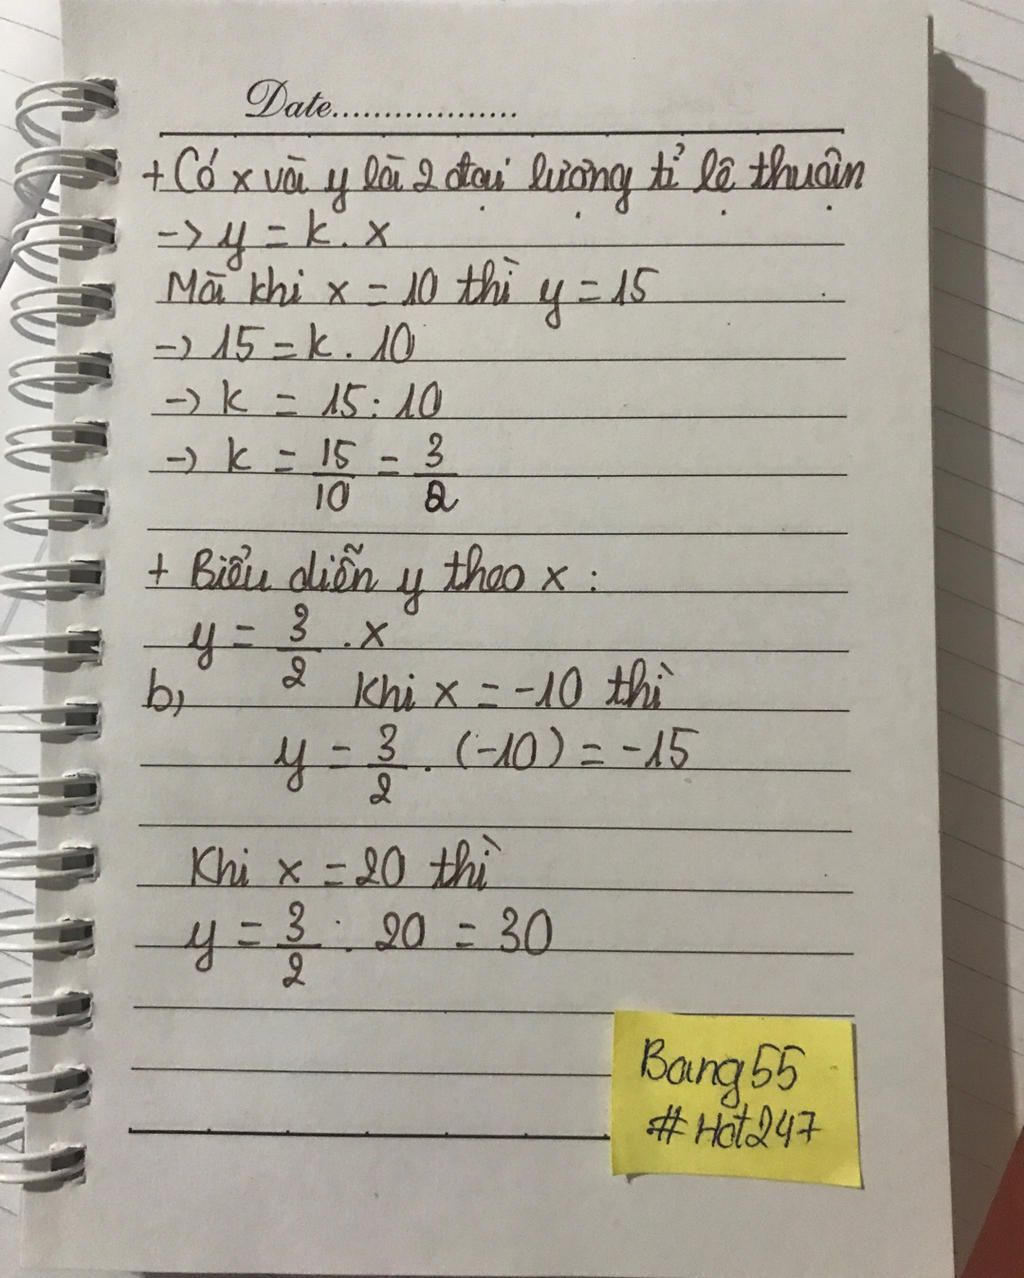 Date..................
+ Có x và y là 2 đại lượng tỉ lệ thuận
-> y = k . x
Mà khi x = 10 thì y = 15
-> 15 = k . 10
-> k = 15 : 10
-> k = 15/10 = 3/2
+ Biểu diễn y theo x :
y = 3/2 . x
b, Khi x = -10 thì
y = 3/2 . (-10) = -15
Khi x = 20 thì
y = 3/2 : 20 = 30
Bang55
#Hot247